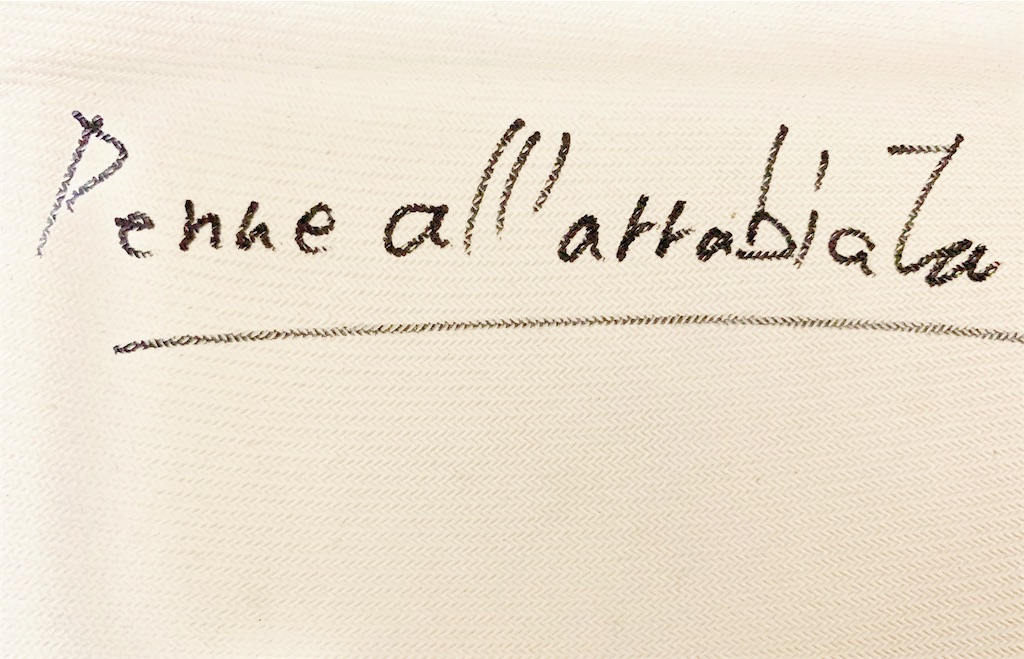 Penne all'arrabiata